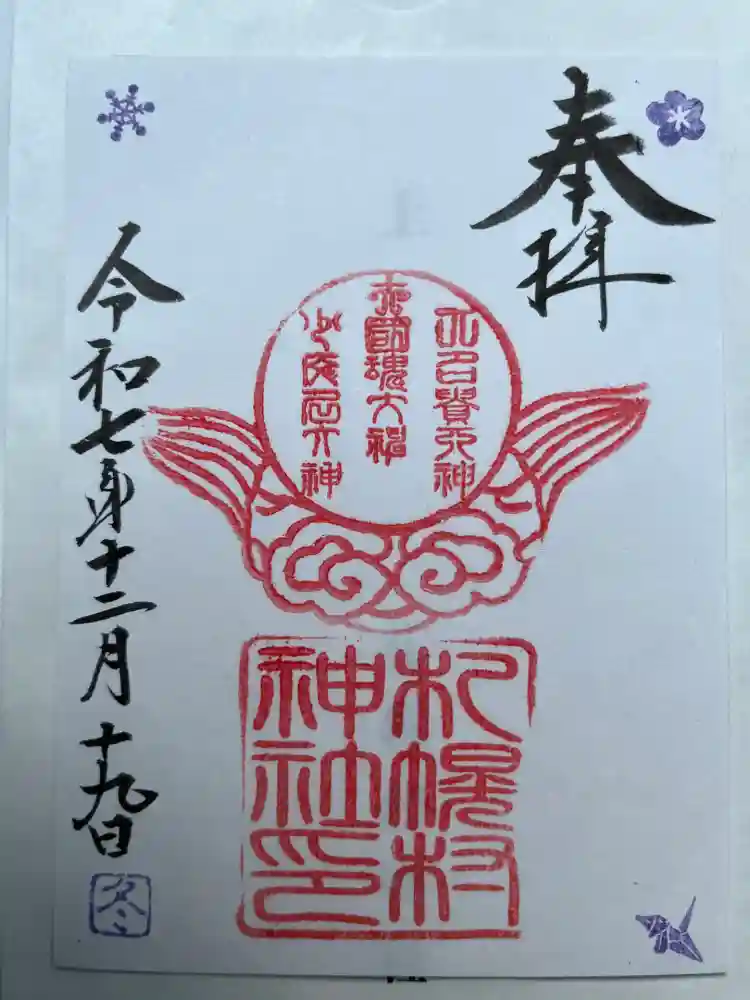 奉拝
大國魂大神
少彦名大神
札幌村
神社印
令和七年十二月十九日
冬